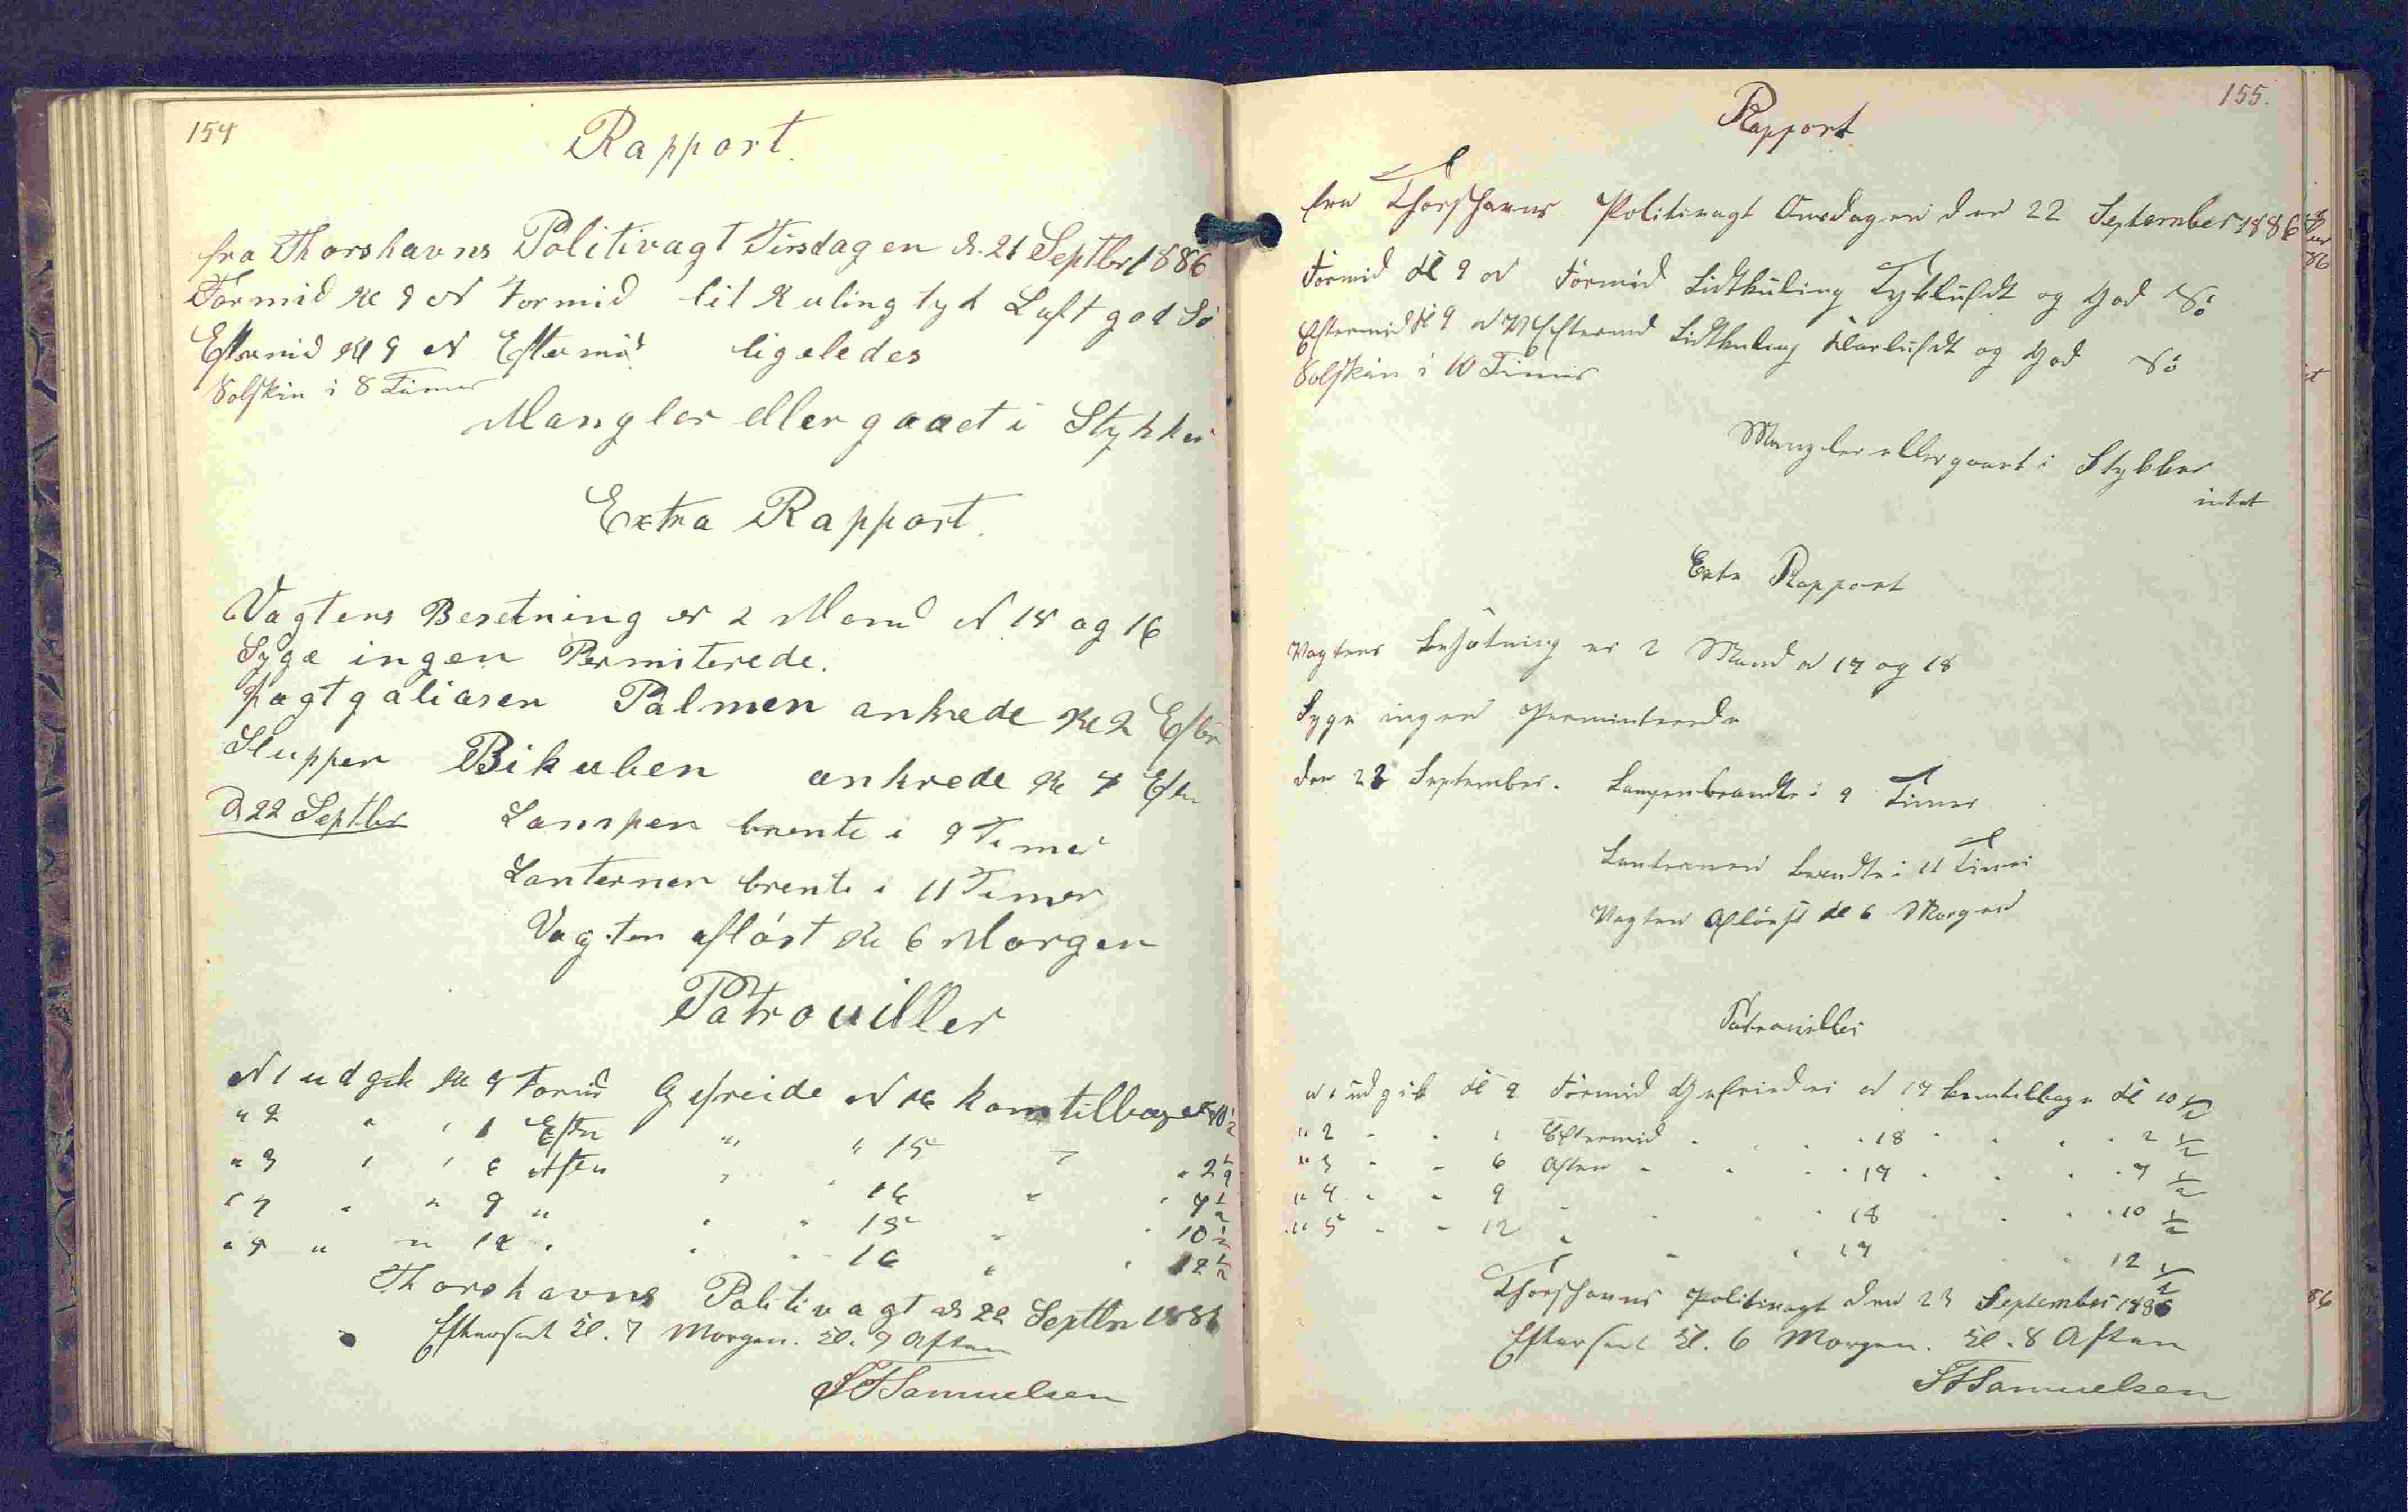 154
Rapport.
fra Thorshavns Politivagt Tirsdagen d. 21 Septbr 1886
Formid Kl 9 N Formid lit Kuling tyk Luft god Sö
Eftermid Kl 9 N Eftermid ligeledes
Solskin i 8 Timer
Mangler eller gaaet i Stykker
Extra Rapport.
Vagtens Besetning er 2 Mand N 15 og 16
Syge ingen Permiterede.
Jagtgaliasen Palmen ankrede Kl 2 Eftr
Sluppen Bikuben ankrede Kl 4 Eftr
d 22 Septbr Lampen brente i 9 Timer
Lanternen brente i 11 Timer
Vagten aflöst Kl 6 Morgen
Patrouiller
N 1 udgik Kl 9 Formid Gefreide N 16 kom tilbage Kl 10 1/2
" 2 " " 1 Eftr " " 15 " " 2 1/2
" 3 " " 6 Aften " " 16 " " 7 1/2
" 4 " " 9 " " " 15 " " 10 1/2
" 5 " " 12 " " " 16 " " 12 1/2
Thorshavns Politivagt d 22 Septbr 1886
Efterseet Kl. 7 Morgen. Kl. 9 Aften
Samuelsen
155.
Rapport
fra Thorshavns Politivagt Onsdagen den 22 September 1886
Formid Kl 9 N Formid Lidtkuling Tyklufdt og God Sö
Eftermid Kl 9 N Eftermid Lidtkuling Klarlufdt og God Sö
Solskin i 10 Timer
Mangler eller gaaet i Stykker
intet
Extr Rapport
Vagtens Besætning er 2 Mand N 17 og 18
Syge ingen Perminterede
den 23 September. Lampen brendte i 9 Timer
Lanternen brendte i 11 Timer
Vagten Aflöest Kl 6 Morgen
Patrouiller
N 1 udgik Kl 9 Formid Gefreider N 17 kom tilbage Kl 10 1/2
" 2 " " 1 Eftermid " " 18 " " 2 1/2
" 3 " " 6 Aften " " 17 " " 7 1/2
" 4 " " 9 " " " 18 " " 10 1/2
" 5 " " 12 " " " 17 " " 12 1/2
Thorshavns Politivagt den 23 September 1886
Efterseet Kl. 6 Morgen. Kl. 8 Aften
Samuelsen